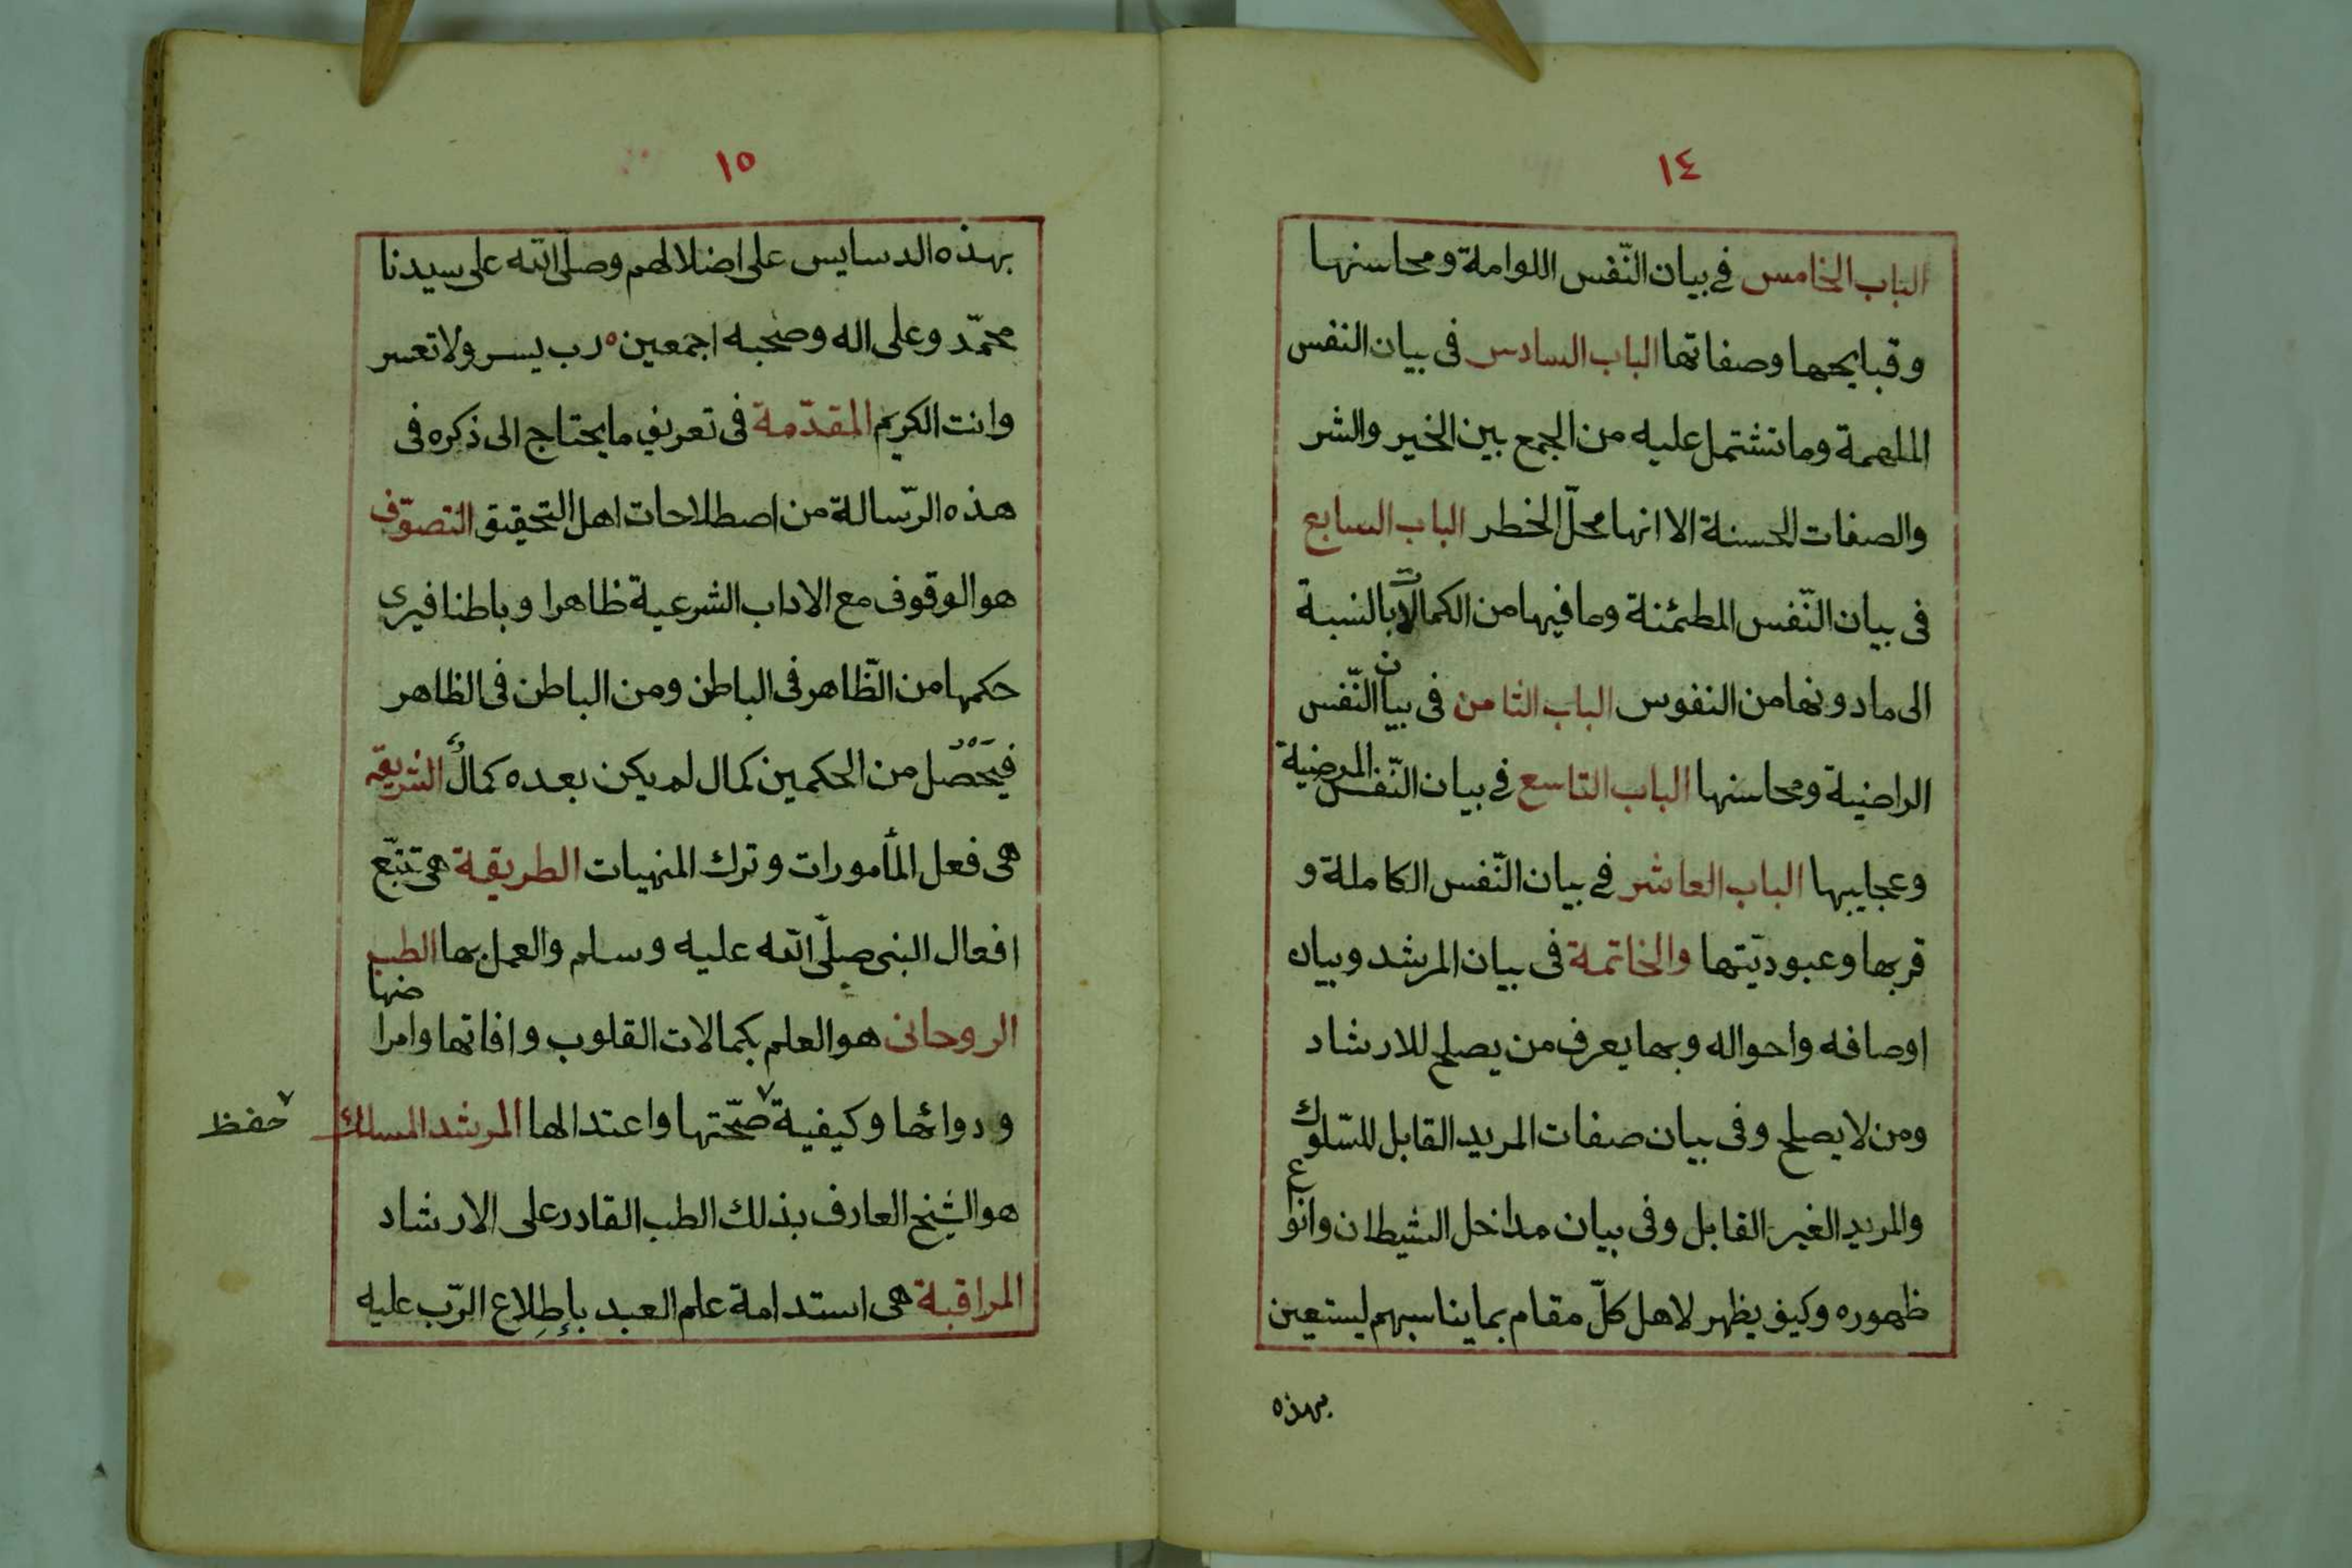 ١٤
الباب الخامس في بيان النّفس اللوامة ومحاسنها
وقبايحها وصفاتها الباب السادس فى بيان النفس
الملهمة وما تشتمل عليه من الجمع بين الخير والشر
والصفات الحسنة الا انها محلّ الخطر الباب السابع
فى بيان النّفس المطمئنة وما فيها من الكمالات بالنسبة
الى ما دونها من النفوس الباب الثامن فى بيان النّفس
الراضية ومحاسنها الباب التاسع في بيان النّفس المرضية
وعجايبها الباب العاشر في بيان النّفس الكاملة و
قربها وعبوديّتها والخاتمة فى بيان المرشد وبيان
اوصافه واحواله وبما يعرف من يصلح للارشاد
ومن لا يصلح وفى بيان صفات المريد القابل للسّلوك
والمريد الغير القابل وفى بيان مداخل الشيطان وانواع
ظهوره وكيف يظهر لاهل كلّ مقام بما يناسبهم ليستعين
بهذه
١٥
بهذه الدسايس على اضلالهم وصلى الله على سيدنا
محمّد وعلى اله وصحبه اجمعين ه رب يسر ولا تعسر
وانت الكريم المقدّمة فى تعريف ما يحتاج الى ذكره فى
هذه الرّسالة من اصطلاحات اهل التحقيق التصوّف
هو الوقوف مع الاداب الشرعية ظاهرا وباطنا فيرى
حكمها من الظّاهر فى الباطن ومن الباطن فى الظاهر
فيحصل من الحكمين كمال لم يكن بعده كمال الشريعة
هى فعل المأمورات وترك المنهيات الطريقة هى تتبّع
افعال النبى صلّى الله عليه وسلم والعمل بها الطب
الروحانى هو العلم بكمالات القلوب وافاتها وامراضها
ودوائها وكيفية ٧ صحّتها واعتدالها المرشد المسلك
٧ حفظ
هو الشيخ العارف بذلك الطب القادر على الارشاد
المراقبة هى استدامة علم العبد بإطلاع الرّب عليه